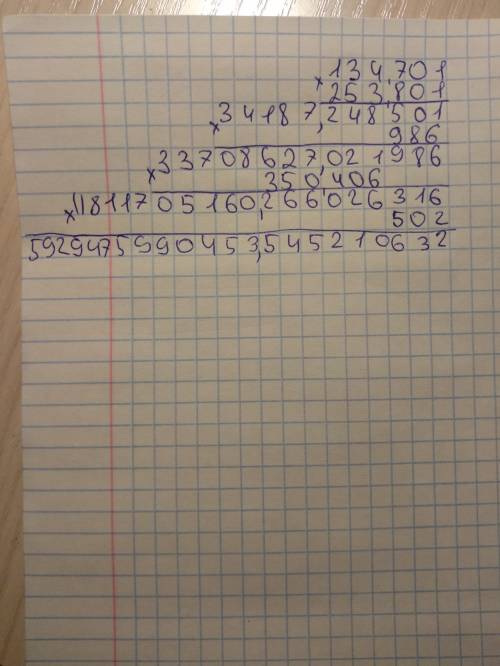 134,701
× 253,801
34187,248501
× 986
33708627,021986
× 350,406
11811705160,266026316
× 502
5929475990453,545210632